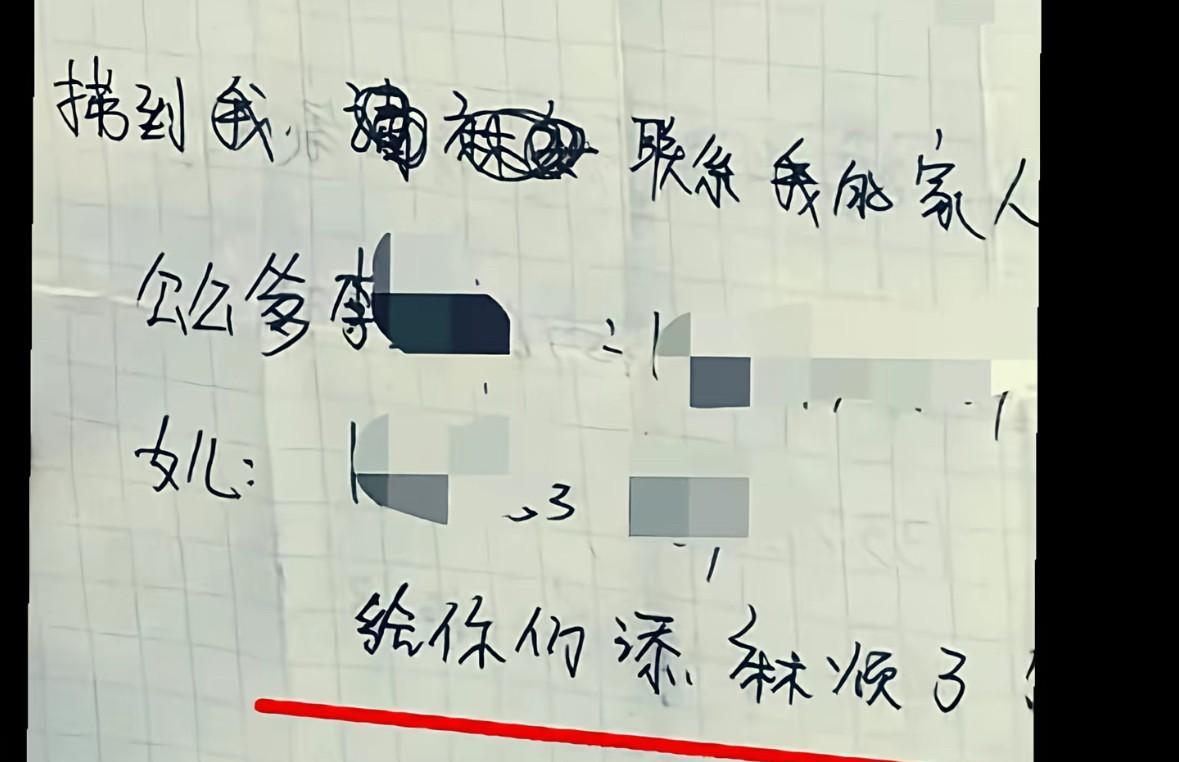 捞到我. 联系我的家人
公公爹李 : 1
女儿: 1 3
给你们添麻烦了